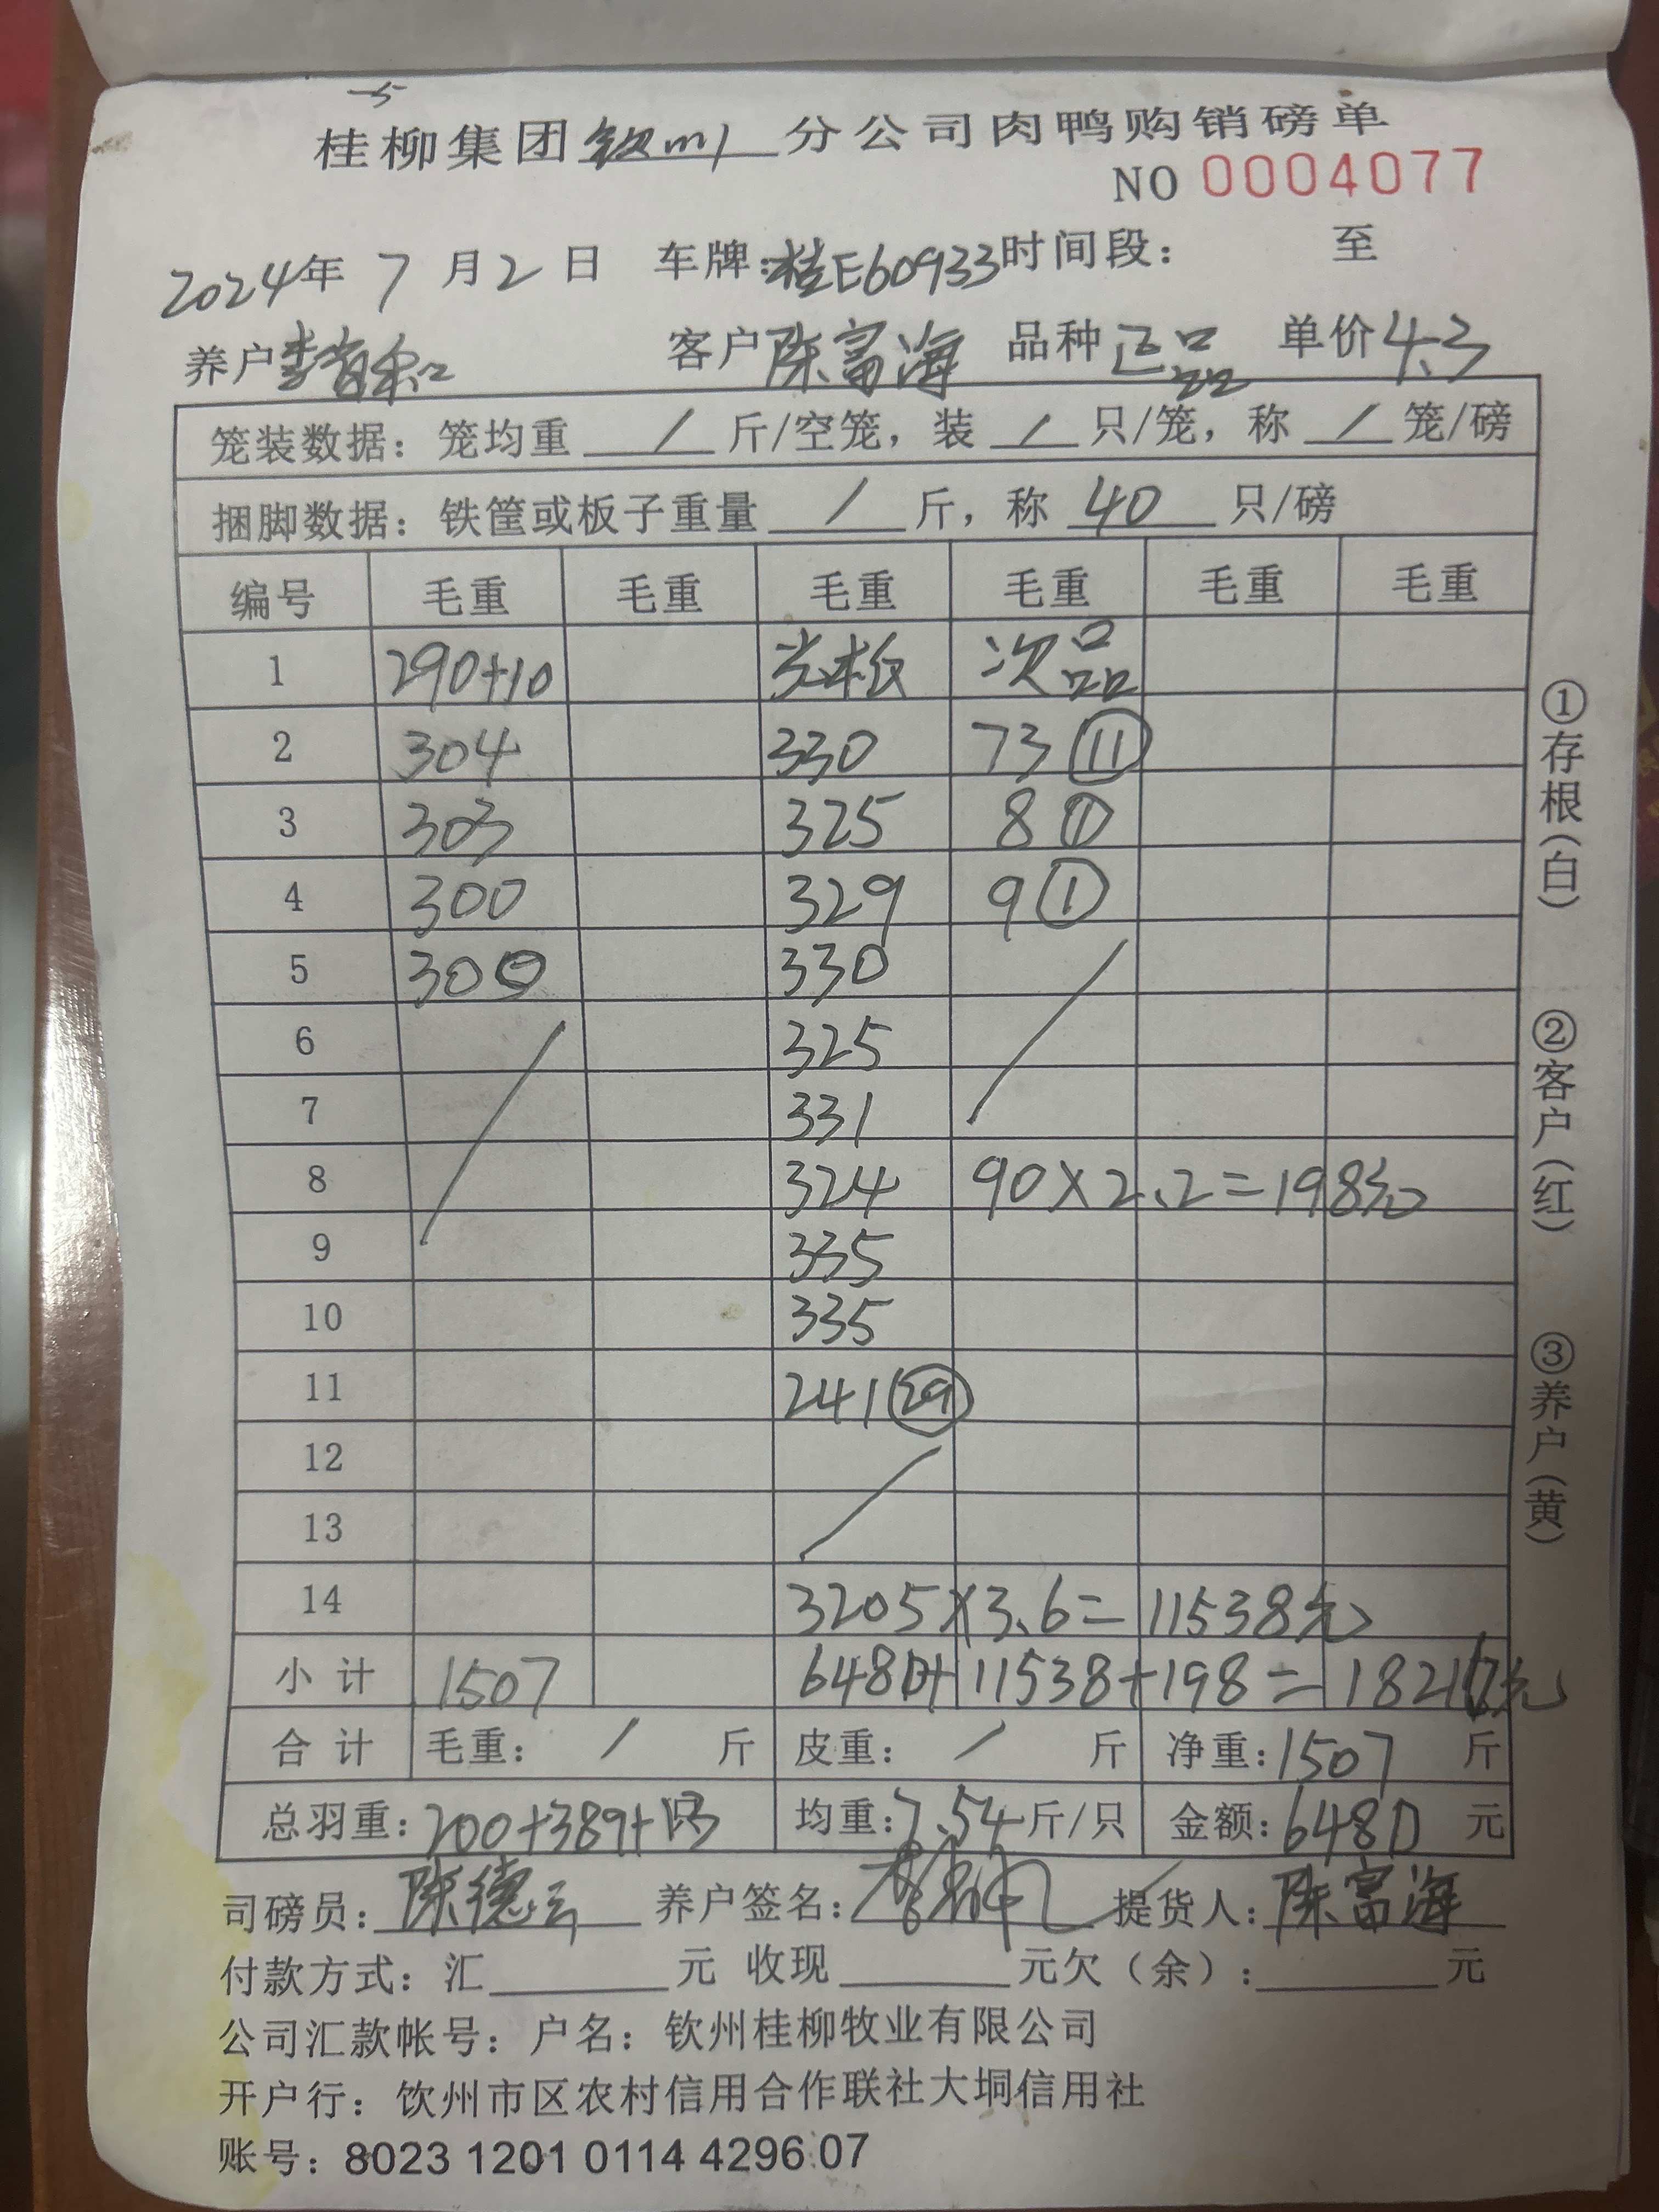 桂柳集团钦州分公司肉鸭购销磅单
NO 0004077
2024年 7 月 2 日 车牌:桂E60933 时间段: 至
养户 客户 陈富海 品种 正品 单价 4.3
笼装数据: 笼均重 / 斤/空笼, 装 / 只/笼, 称 / 笼/磅
捆脚数据: 铁筐或板子重量 / 斤, 称 40 只/磅
编号 毛重 毛重 毛重 毛重 毛重 毛重
1 290+10 次品
2 304 330 73 ⑪
3 303 325 8 ①
4 300 329 9 ①
5 300 330
6 325
7 331
8 324 90×2.2=198元
9 335
10 335
11 241 ㉙
12
13
14 3205×3.6=11538元
小计 1507 6480+11538+198=18216元
合计 毛重: / 斤 皮重: / 斤 净重: 1507 斤
总羽重: 200+389+13 均重: 7.54 斤/只 金额: 6480 元
司磅员: 陈德云 养户签名: 提货人: 陈富海
付款方式: 汇 元 收现 元欠(余): 元
公司汇款帐号: 户名: 钦州桂柳牧业有限公司
开户行: 钦州市区农村信用合作联社大垌信用社
账号: 8023 1201 0114 4296 07
①存根(白)
②客户(红)
③养户(黄)